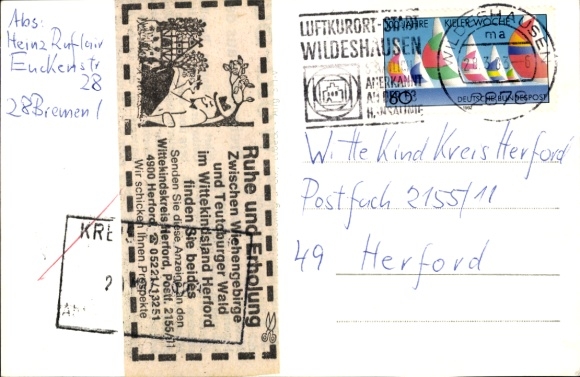 Abs:
Heinz Ruflair
Euckenstr
28
28 Bremen 1
Ruhe und Erholung
Zwischen Wiehengebirge
und Teutoburger Wald
im Wittekindsland Herford
finden Sie beides
Senden Sie diese Anzeige an den
Wittekindskreis Herford, Postf. 2155/11
4900 Herford, ☎ 05221/13251
Wir schicken Ihnen Prospekte
KRE
LUFTKURORT-STADT
WILDESHAUSEN
ANERKANNT
WILDESHAUSEN
ma
KIELER WOCHE
80
DEUTSCHE BUNDESPOST
Witte Kind Kreis Herford
Postfach 2155/11
49 Herford